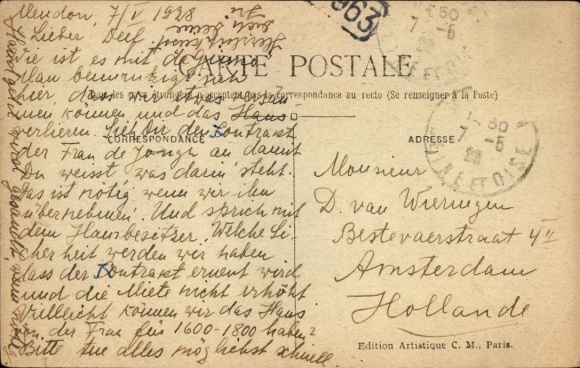 Meudon, 7/V 1928
Lieber Deef.
Wie ist es mit de
Man beunruhigt sich
hier, dass wir etwas versäu-
men können und das Haus
verlieren. Sieh Dir den Kontrakt
der Frau de Jongh an damit
Du weisst was darin steht.
Das ist nötig wenn wir ihn
übernehmen. Und sprich mit
dem Hausbesitzer. Welche Si-
cherheit werden wir haben
dass der Kontrakt erneut wird
und die Miete nicht erhöht
Vielleicht können wir das Haus
von der Frau für 1600-1800 haben?
Bitte tue alles möglichst schnell
Herzlichst
CARTE POSTALE
Tous les pays étrangers n'acceptent pas la correspondance au recto (Se renseigner à la Poste)
CORRESPONDANCE
ADRESSE
Monsieur
D. van Wieringen
Bestevaerstraat 4 II
Amsterdam
Hollande
Edition Artistique C. M., Paris.
963
7 - 5
SEINE ET OISE